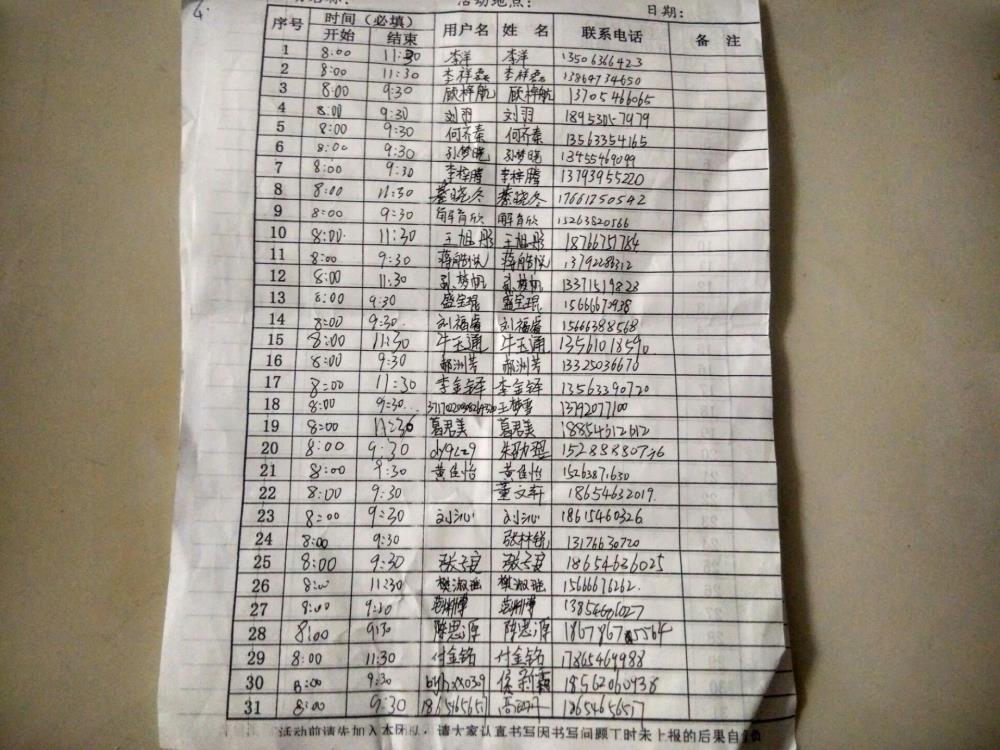 4.
活动地点： 日期：
序号 时间（必填） 用户名 姓 名 联系电话 备 注
开始 结束
1 8:00 11:30 李洋 李洋 13506366423
2 8:00 11:30 李祥磊 李祥磊 13864734650
3 8:00 9:30 顾梓航 顾梓航 13705466065
4 8:00 9:30 刘羽 刘羽 18953057979
5 8:00 9:30 何齐秦 何齐秦 13563354165
6 8:00 9:30 孙梦晓 孙梦晓 13455469099
7 8:00 9:30 李梓腾 李梓腾 13793955220
8 8:00 11:30 綦晓冬 綦晓冬 17661750542
9 8:00 9:30 解肖欣 解肖欣 15263820566
10 8:00 11:30 王旭彤 王旭彤 18766757784
11 8:00 9:30 蒋皓悦 蒋皓悦
12 8:00 11:30 孙梦帆 孙梦帆 13371519823
13 8:00 9:30 盛宝琨 盛宝琨 15666670938
14 8:00 9:30 刘福睿 刘福睿 15666388568
15 8:00 11:30 牛玉通 牛玉通 13561018590
16 8:00 9:30 郝洲芳 郝洲芳 13325036676
17 8:00 11:30 李金铎 李金铎 13563390720
18 8:00 9:30 13792077100
19 8:00 11:30 葛君美 葛君美 18854312612
20 8:00 9:30
21 8:00 9:30 黄佳怡 黄佳怡 15263871630
22 8:00 9:30 董文轩 18654632019
23 8:00 9:30 刘沁 刘沁 18615460326
24 8:00 9:30 张林锐 13176630720
25 8:00 9:30 18654626025
26 8:00 11:30 樊淑瑶 樊淑瑶 15666676262
27 8:00 9:30
28 8:00 9:30 陈思源 陈思源
29 8:00 11:30 付金铭 付金铭 17865469988
30 8:00 9:30 18562060938
31 8:00 9:30
活动前请先加入本团队，请大家认真书写因书写问题丁时未上报的后果自负